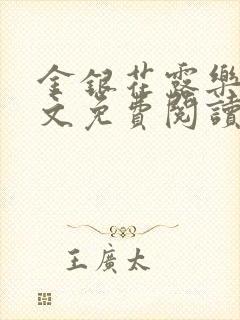 金銀花露樂
文免費閱讀
王廣太